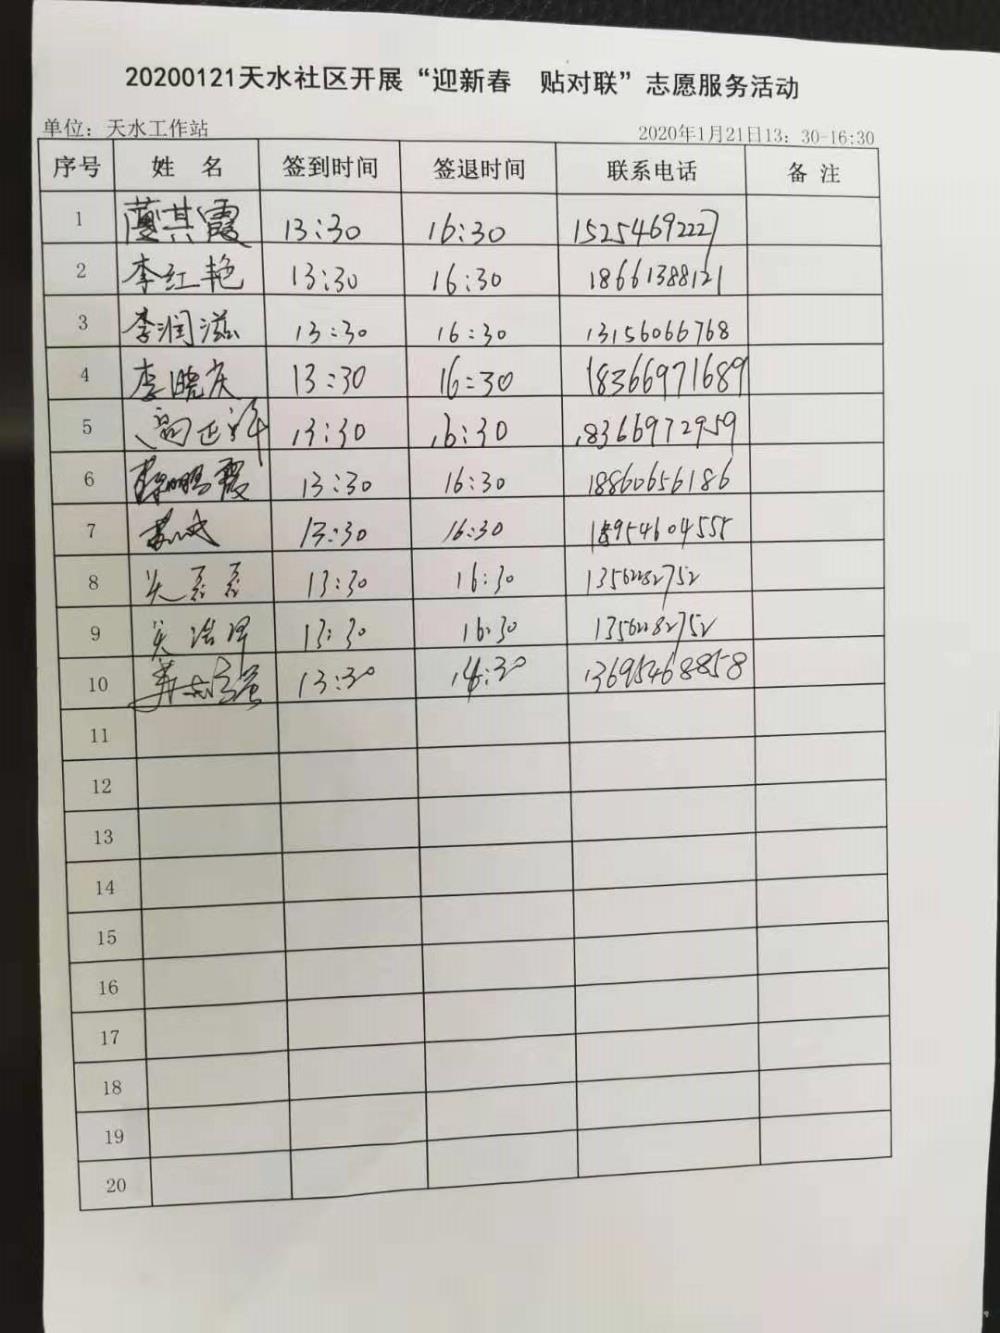 20200121天水社区开展“迎新春 贴对联”志愿服务活动
单位：天水工作站 2020年1月21日13：30-16:30
序号 姓 名 签到时间 签退时间 联系电话 备 注
1 淇霞 13:30 16:30 15254692227
2 李红艳 13:30 16:30 18661388121
3 李润滋 13:30 16:30 13156066768
4 李晓庆 13:30 16:30 18366971689
5 13:30 16:30 18366972959
6 13:30 16:30 18860656186
7 13:30 16:30 18954604555
8 13:30 16:30
9 13:30 16:30
10 13:30 16:30 13695468858
11
12
13
14
15
16
17
18
19
20